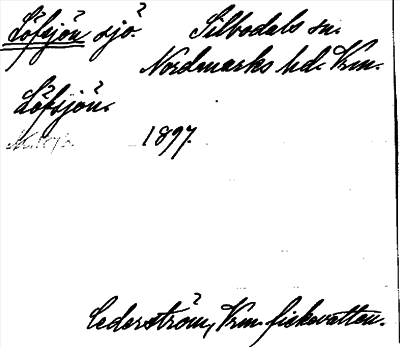 Löfsjön sjö Silbodals sn.
Nordmarks hd. Vrm.
Löfsjön.
1897.
Cederström, Vrm. fiskevatten.